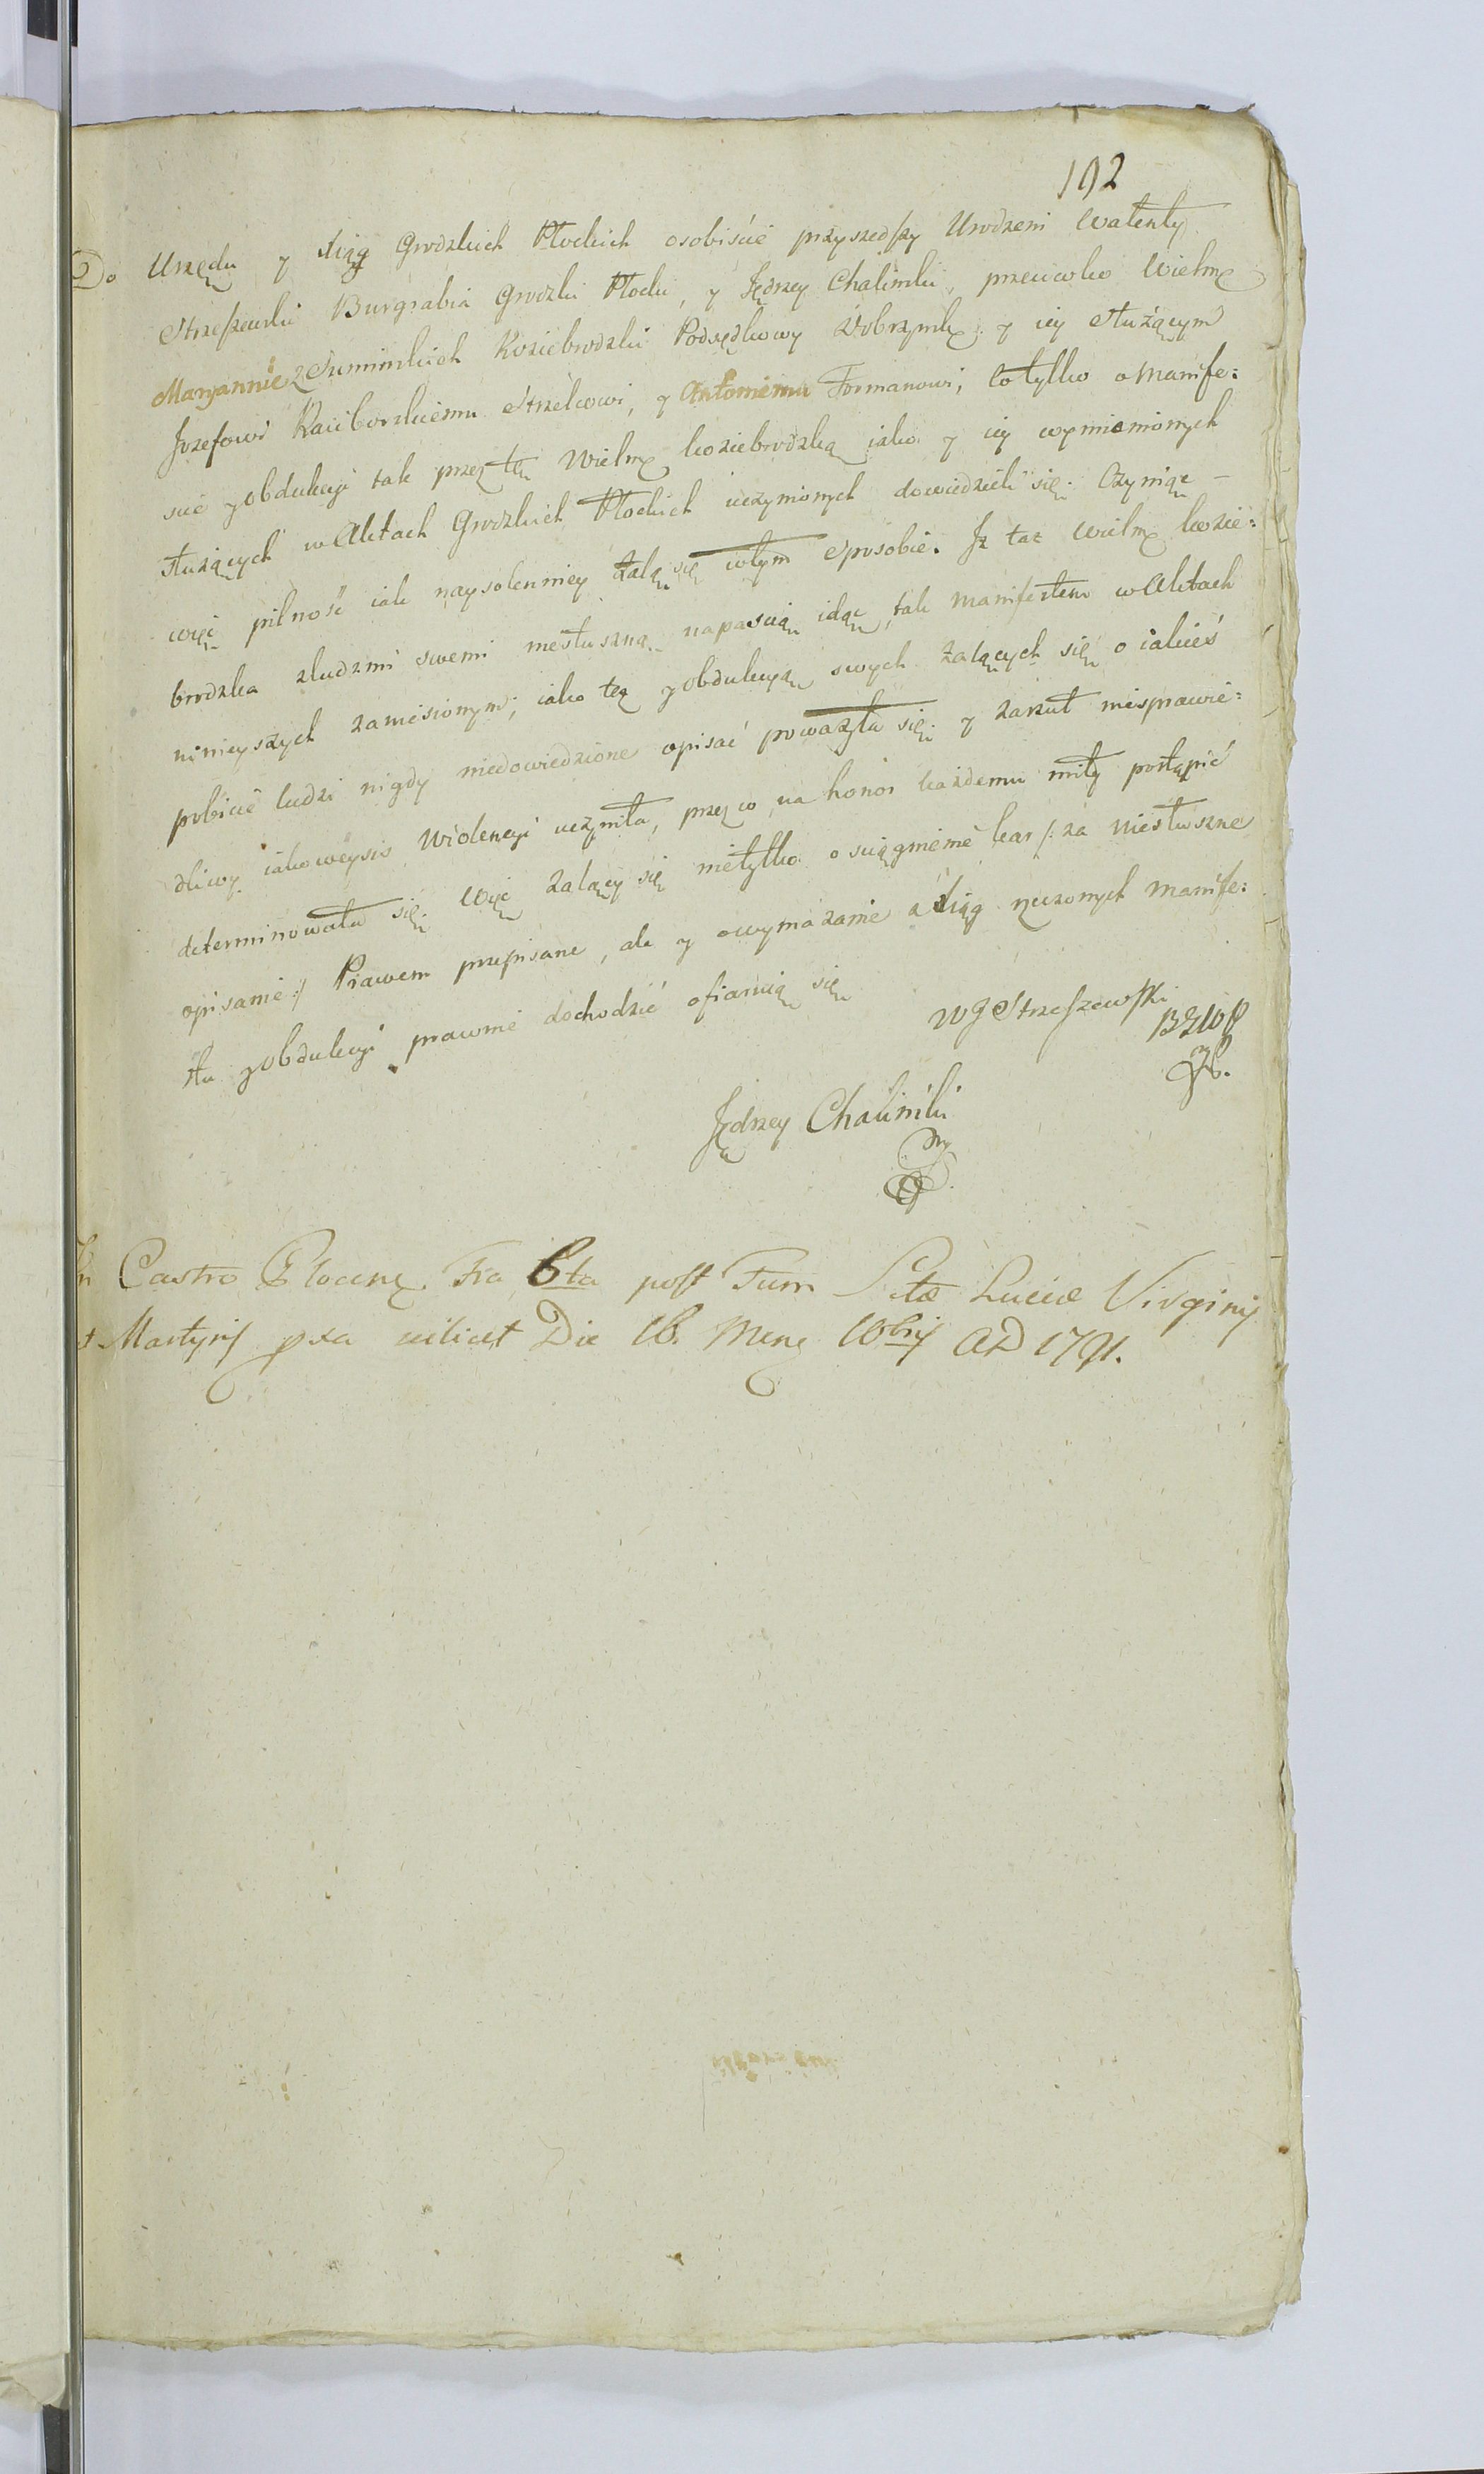 192
Do Urzędu y Xiąg Grodzkich Płockich osobiście przyszedszy Urodzeni Walenty
Strzeszewski Burgrabia Grodzki Płocki, y Jędrzey Chaliński, przeciwko Wielmę
Maryannie z Sumińskich Koziebrodzki Podsędkowy Dobrzynsky y iey służącym
Jozefowi Raciborskiemu Strzelcowi, y Antoniemu Formanowi, co tylko o Manife:
scie y obdukcyi tak przez tę Wielmę koziebrodzką iako y iey wymienionych
służących w Aktach Grodzkich Płockich uczynionych dowiedzieli się. Czyniąc -
więc pilność iak naysolenniey żalą się w tym sposobie. Iż taż Wielmę kozie:
brodzka z ludzmi swemi niesłuszną napaścią idąc, tak Manifestem w Aktach
ninieyszych zaniesionym, iako też y obdukcyą swych żalących się o iakieś
pobicie ludzi nigdy niedowiedzione opisać poważyła się. y zarzut niesprawie:
dliwy iakoweysis Wiolencyi uczyniła, przez co, na honor każdemu miły postąpić
determinowała się. Więc żalący się nietylko o sciągnienie kar /: za niesłuszne
opisanie :/ Prawem przepisane, ale y o wymazanie z Xiąg rzeczonych Manife:
stu y obdukcyi prawnie dochodzić ofiaruią się
WJStrzeszewski
BGWP
Jędrzey Chaliński
In Castro Plocensę Fra 6ta post Fum Sctæ Luciæ Virginis
et Martyris pxa scilicet Die 16. Mensę 10bris AD 1791.